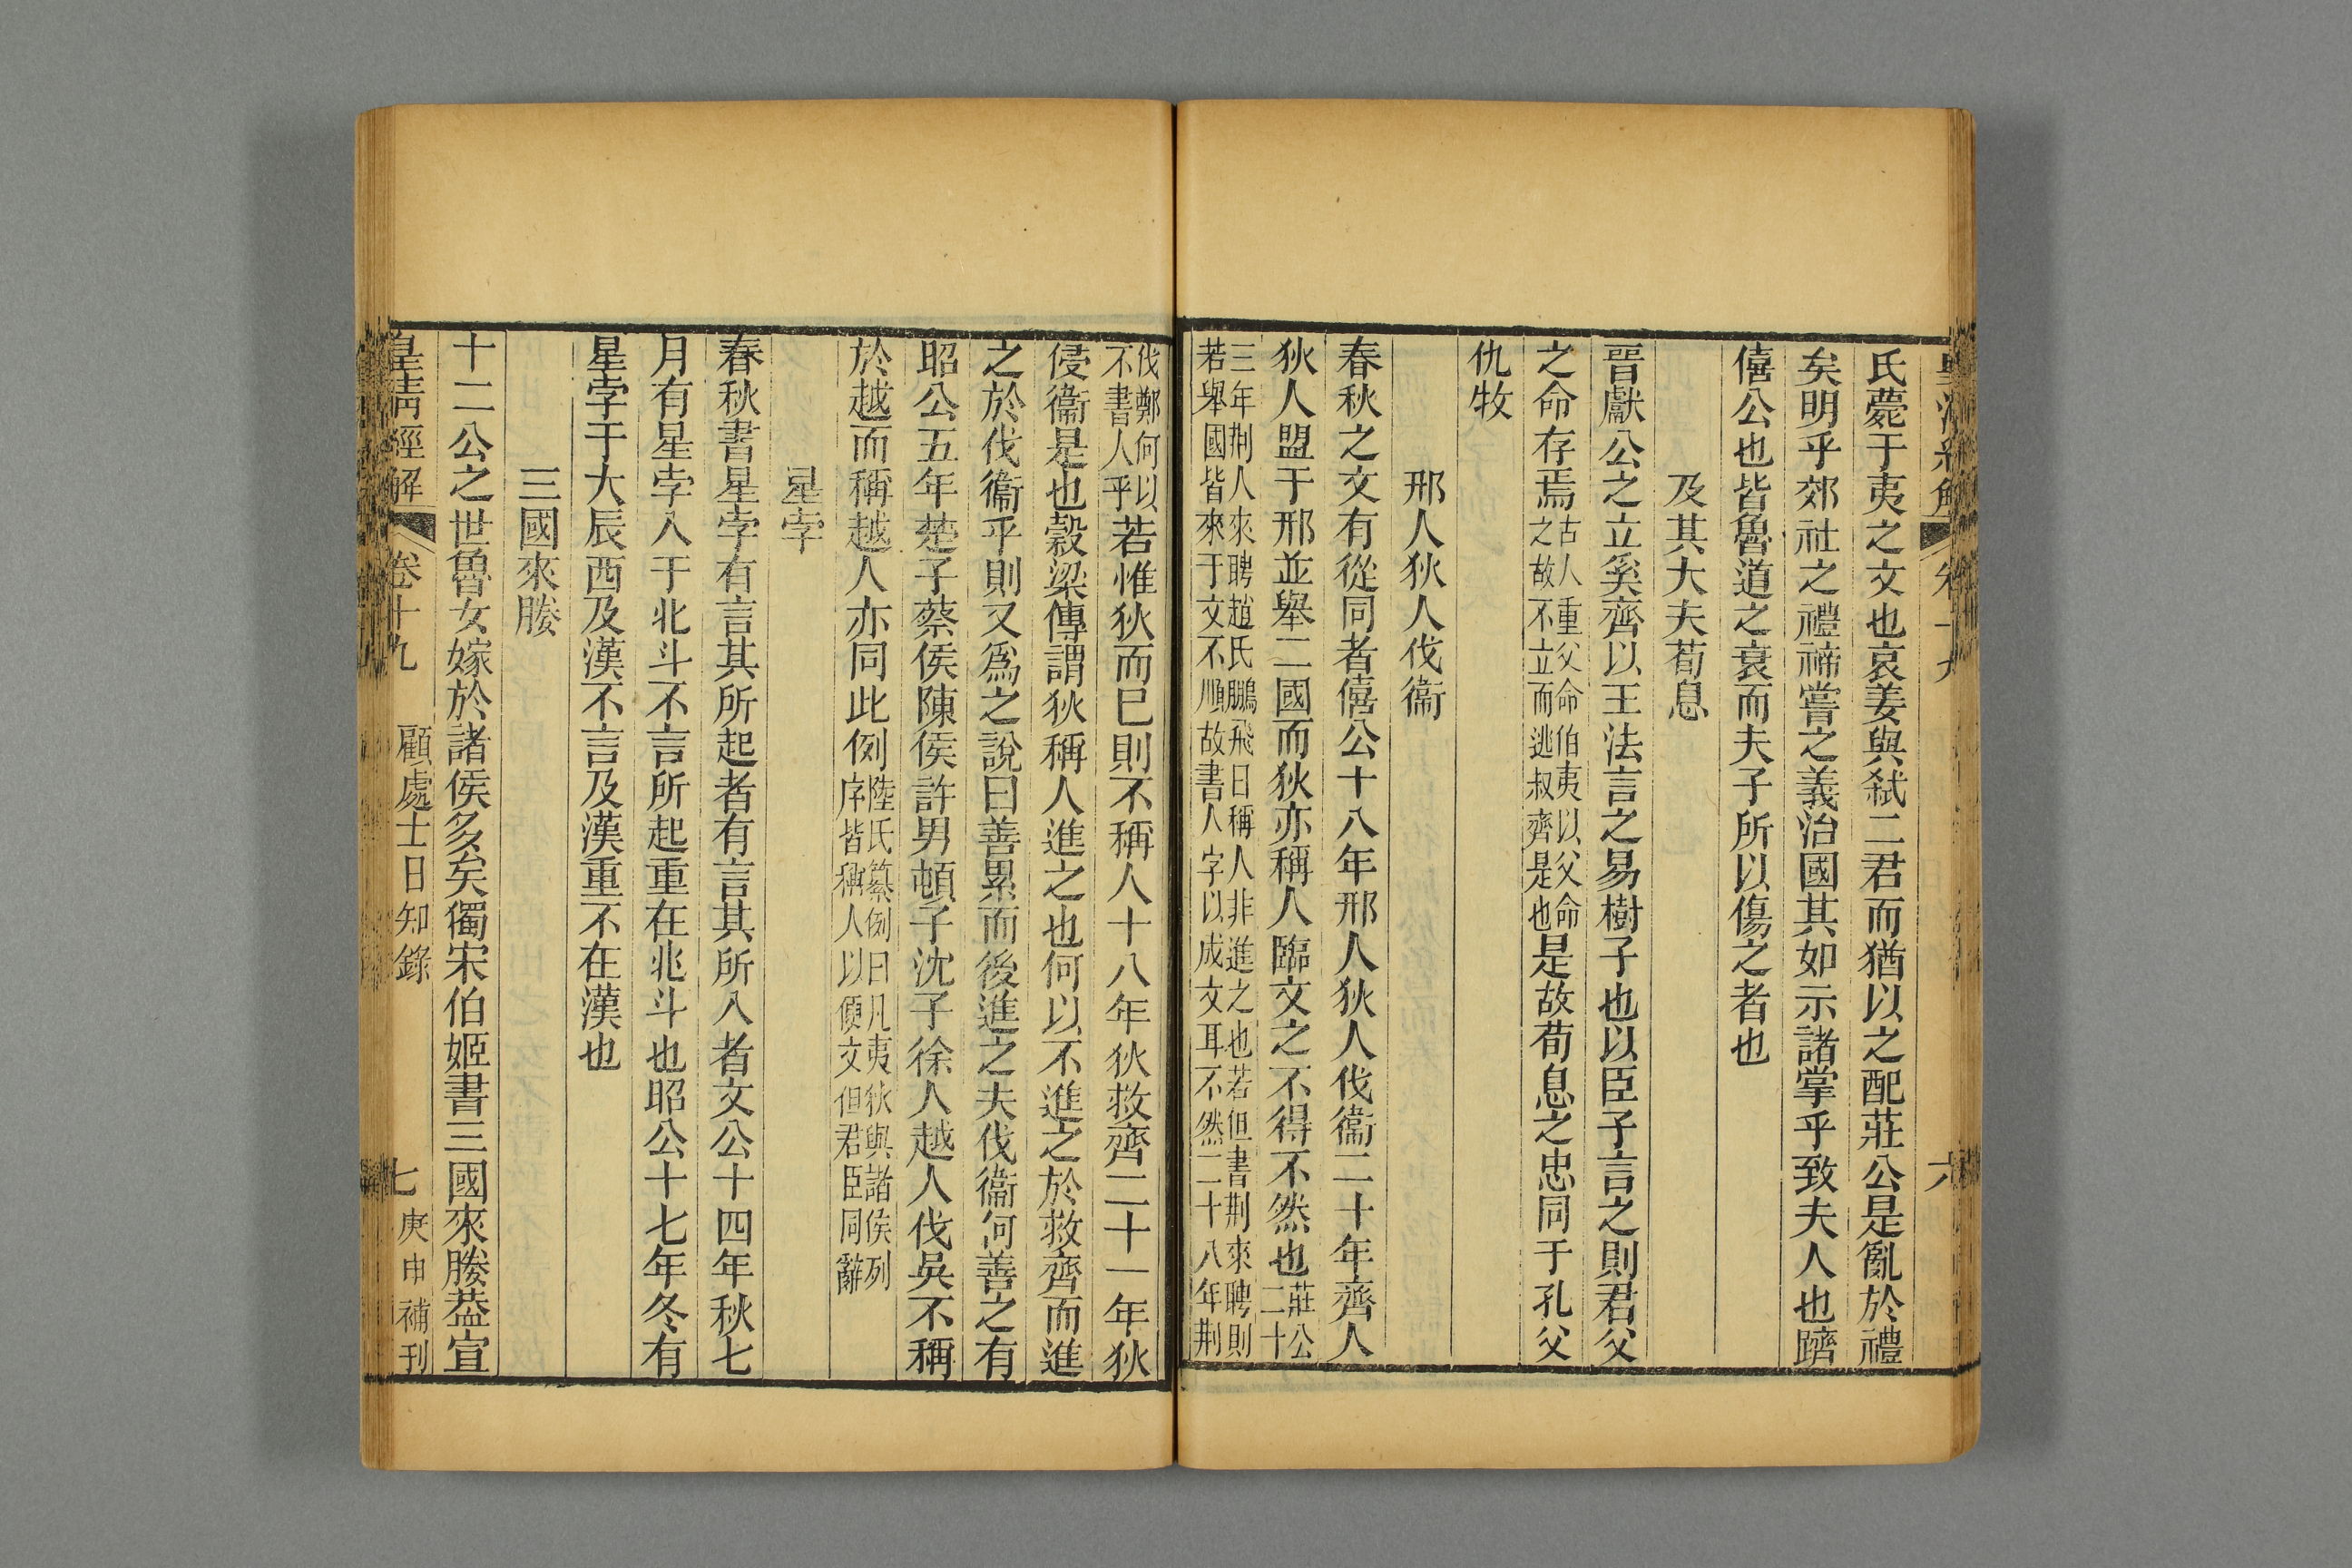 氏薨于夷之文也哀姜與弑二君而猶以之配莊公是亂於禮
矣明乎郊社之禮禘嘗之義治國其如示諸掌乎致夫人也躋
僖公也皆魯道之衰而夫子所以傷之者也
及其大夫荀息
晉獻公之立奚齊以王法言之易樹子也以臣子言之則君父
之命存焉古人重父命伯夷以父命之故不立而逃叔齊是也是故荀息之忠同于孔父
仇牧
邢人狄人伐衞
春秋之文有從同者僖公十八年邢人狄人伐衞二十年齊人
狄人盟于邢並舉二國而狄亦稱人臨文之不得不然也莊公二十
三年荆人來聘趙氏鵬飛曰稱人非進之也若但書荆來聘則
若舉國皆來于文不順故書人字以成文耳不然二十八年荆
伐鄭何以不書人乎若惟狄而巳則不稱人十八年狄救齊二十一年狄
侵衞是也穀梁傳謂狄稱人進之也何以不進之於救齊而進
之於伐衞乎則又爲之說曰善累而後進之夫伐衞何善之有
昭公五年楚子蔡侯陳侯許男頓子沈子徐人越人伐吳不稱
於越而稱越人亦同此例陸氏纂例曰凡夷狄與諸侯列序皆稱人以便文但君臣同辭
星孛
春秋書星孛有言其所起者有言其所入者文公十四年秋七
月有星孛入于北斗不言所起重在北斗也昭公十七年冬有
星孛于大辰西及漢不言及漢重不在漢也
三國來媵
十二公之世魯女嫁於諸侯多矣獨宋伯姬書三國來媵葢宣
皇清經解 卷十九 顧處士日知錄 七 庚申補刊